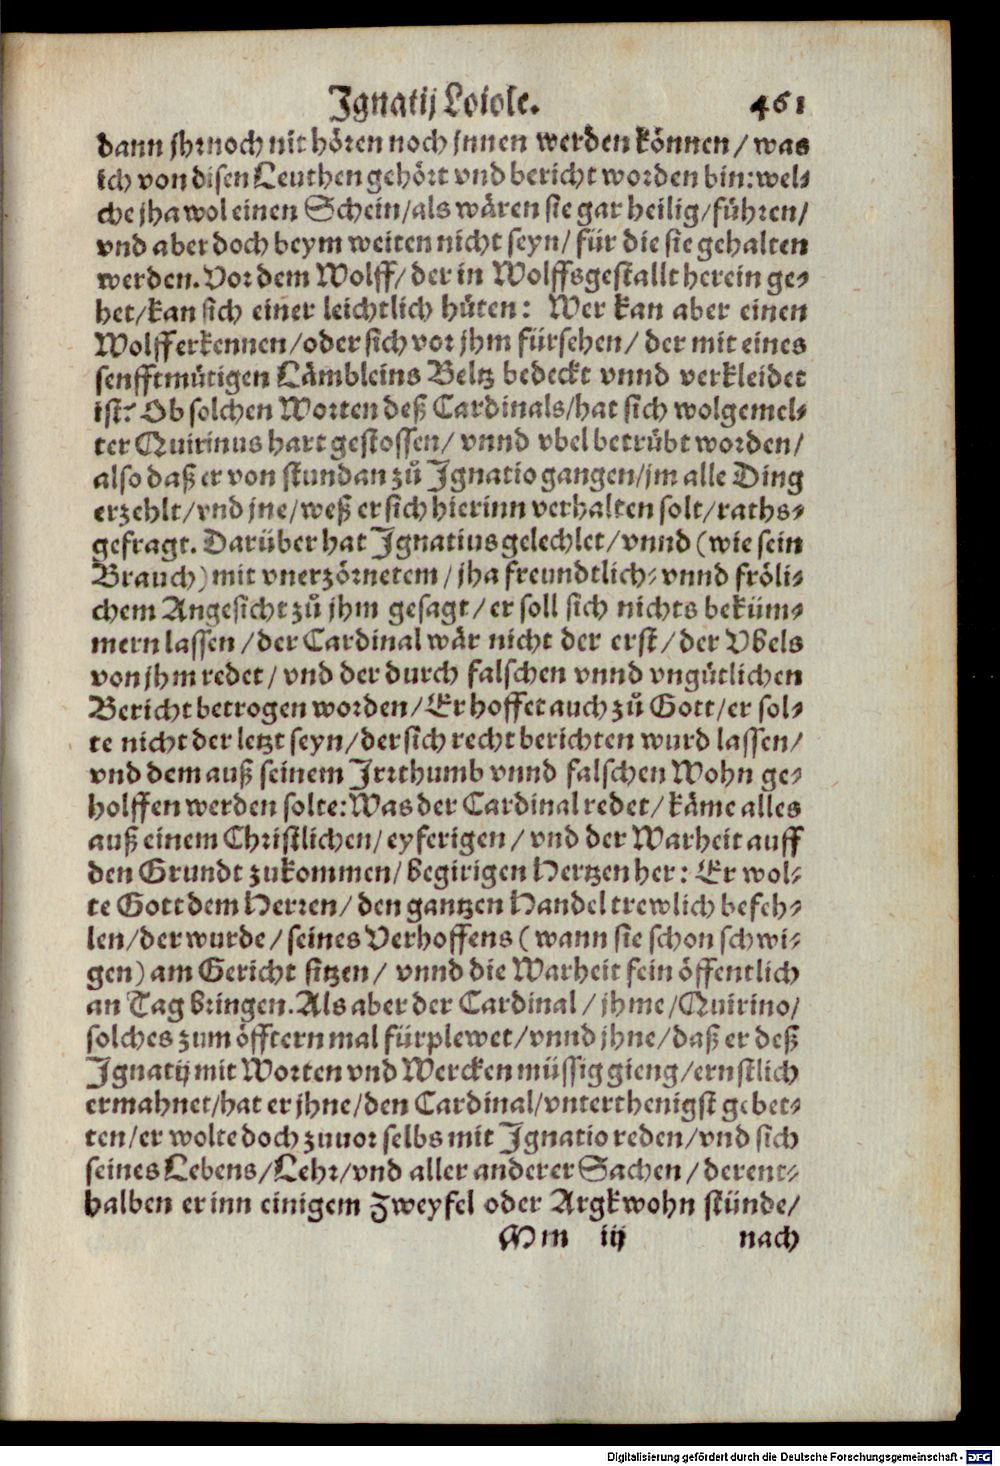 Ignatij Loiole. 461
dann jhr noch nit hören noch jnnen werden können / was
ich von disen Leuthen gehört vnd bericht worden bin: wel-
che jha wol einen Schein / als wären sie gar heilig / führen /
vnd aber doch beym weiten nicht seyn / für die sie gehalten
werden. Vor dem Wolff / der in Wolffsgestallt herein ge-
het / kan sich einer leichtlich hüten: Wer kan aber einen
Wolff erkennen / oder sich vor jhm fürsehen / der mit eines
senfftmütigen Lämbleins Beltz bedeckt vnnd verkleidet
ist? Ob solchen Worten deß Cardinals / hat sich wolgemel-
ter Quirinus hart gestossen / vnnd vbel betrübt worden /
also daß er von stundan zů Ignatio gangen / jm alle Ding
erzehlt / vnd jne / weß er sich hierinn verhalten solt / raths-
gefragt. Darüber hat Ignatius gelechlet / vnnd (wie sein
Brauch) mit vnerzörnetem / jha freundtlich- vnnd fröli-
chem Angesicht zů jhm gesagt / er soll sich nichts beküm-
mern lassen / der Cardinal wär nicht der erst / der Vbels
von jhm redet / vnd der durch falschen vnnd vngütlichen
Bericht betrogen worden / Er hoffet auch zů Gott / er sol-
te nicht der letzt seyn / der sich recht berichten wurd lassen /
vnd dem auß seinem Irrthumb vnnd falschen Wohn ge-
holffen werden solte: Was der Cardinal redet / käme alles
auß einem Christlichen / eyferigen / vnd der Warheit auff
den Grundt zukommen / begirigen Hertzen her: Er wol-
te Gott dem Herren / den gantzen Handel trewlich befeh-
len / der wurde / seines Verhoffens (wann sie schon schwi-
gen) am Gericht sitzen / vnnd die Warheit fein öffentlich
an Tag bringen. Als aber der Cardinal / jhme / Quirino /
solches zum öfftern mal fürplewet / vnnd jhne / daß er deß
Ignatij mit Worten vnd Wercken müssig gieng / ernstlich
ermahnet / hat er jhne / den Cardinal / vnterthenigst gebet-
ten / er wolte doch zuuor selbs mit Ignatio reden / vnd sich
seines Lebens / Lehr / vnd aller anderer Sachen / derent-
halben er inn einigem Zweyfel oder Argkwohn stünde /
Mm iij nach
Digitalisierung gefördert durch die Deutsche Forschungsgemeinschaft - DFG